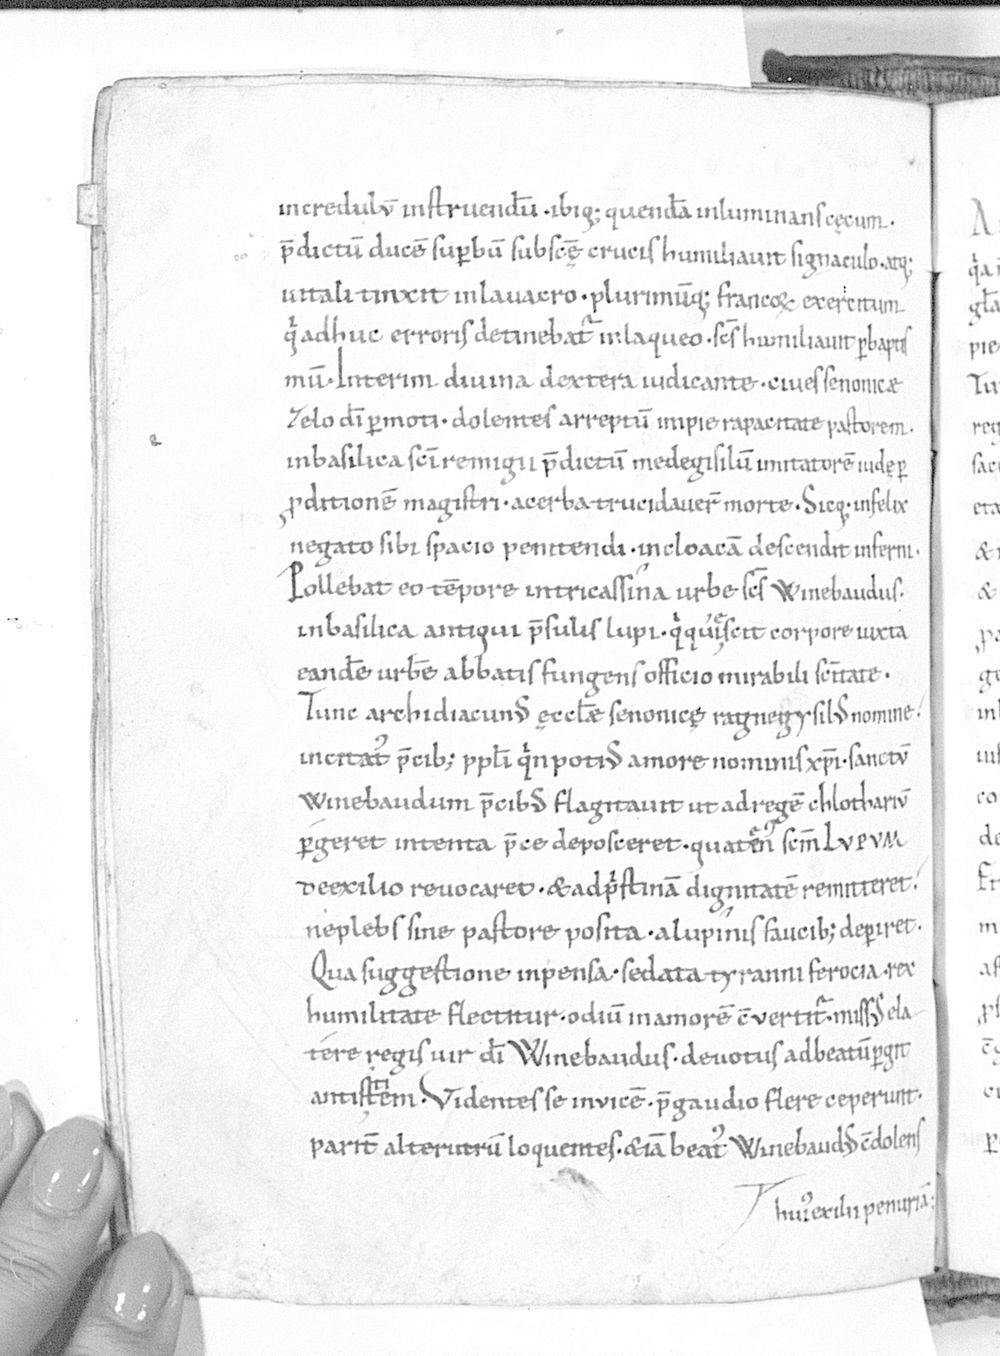 incredulū instruendū · ibiq; quendā inluminans cęcum.
p̄dictū ducē sup̄bū sub scę̄ crucis humiliauit signaculo · atq;
uitali tinxit in lauacro · plurimūq; francoꝝ exercitum
q̓ adhuc erroris detinebat᷑ in laqueo · sc̄s humiliauit p̱ baptis
mū · Interim diuina dextera iudicante · ciues senonicæ
zelo dī p̱moti · dolentes arreptū impie rapacitate pastorem.
in basilica scī remigii p̄dictū medegisilū imitatorē iudę p̱
ꝓditionē magistri · acerba trucidauer̄ morte · Sicq; infelix
negato sibi spacio penitendi · in cloacā descendit inferni.
Pollebat eo tēpore in tricassina urbe sc̄s Winebaudus.
in basilica antiqui p̄sulis lupi · q̓ q̓uięscit corpore iuxta
eandē urbē abbatis fungens officio mirabili sc̄itate ·
Tunc archidiaconꝰ ęccłæ senonicę ragnegysilꝰ nomine.
incitatꝰ p̄cib; ppłi q̓n potiꝰ amore nominis xp̄i · sanctū
winebaudum p̄cibꝰ flagitauit ut ad regē chlothariū
p̱geret intenta p̄ce deposceret · quatenꝰ scm̄ LVPVM
de exilio reuocaret · & ad p̓stinā dignitatē remitteret.
ne plebs sine pastore posita · a lupinis faucib; dep̱iret.
Qua suggestione inpensa · sedata tyranni ferocia · rex
humilitate flectitur · odiū in amorē c̄vertit᷑ · missꝰ e la
tere regis uir dī Winebaudus · deuotus ad beatū p̱git
antistitem. Videntes se inuicē · p̄ gaudio flere ceperunt.
parit̄ alterutrū loquentes · & iā beatꝰ Winebaudꝰ c̄dolens
huiꝰ exilii penuriā;